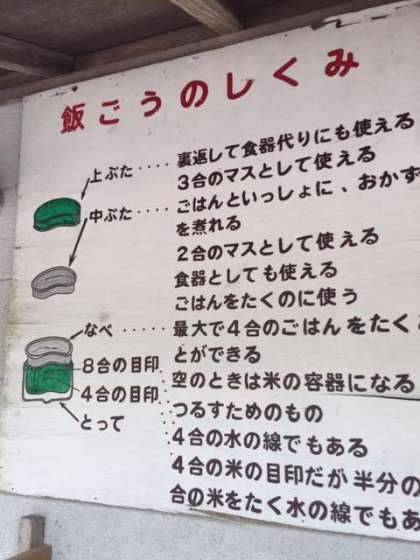 飯ごうのしくみ
上ぶた････裏返して食器代りにも使える
３合のマスとして使える
中ぶた････ごはんといっしょに、おかず
を煮れる
２合のマスとして使える
食器としても使える
ごはんをたくのに使う
なべ･････最大で４合のごはんをたく
とができる
８合の目印 空のときは米の容器になる
４合の目印 つるすためのもの
とって ４合の水の線でもある
４合の米の目印だが半分の
合の米をたく水の線でもあ